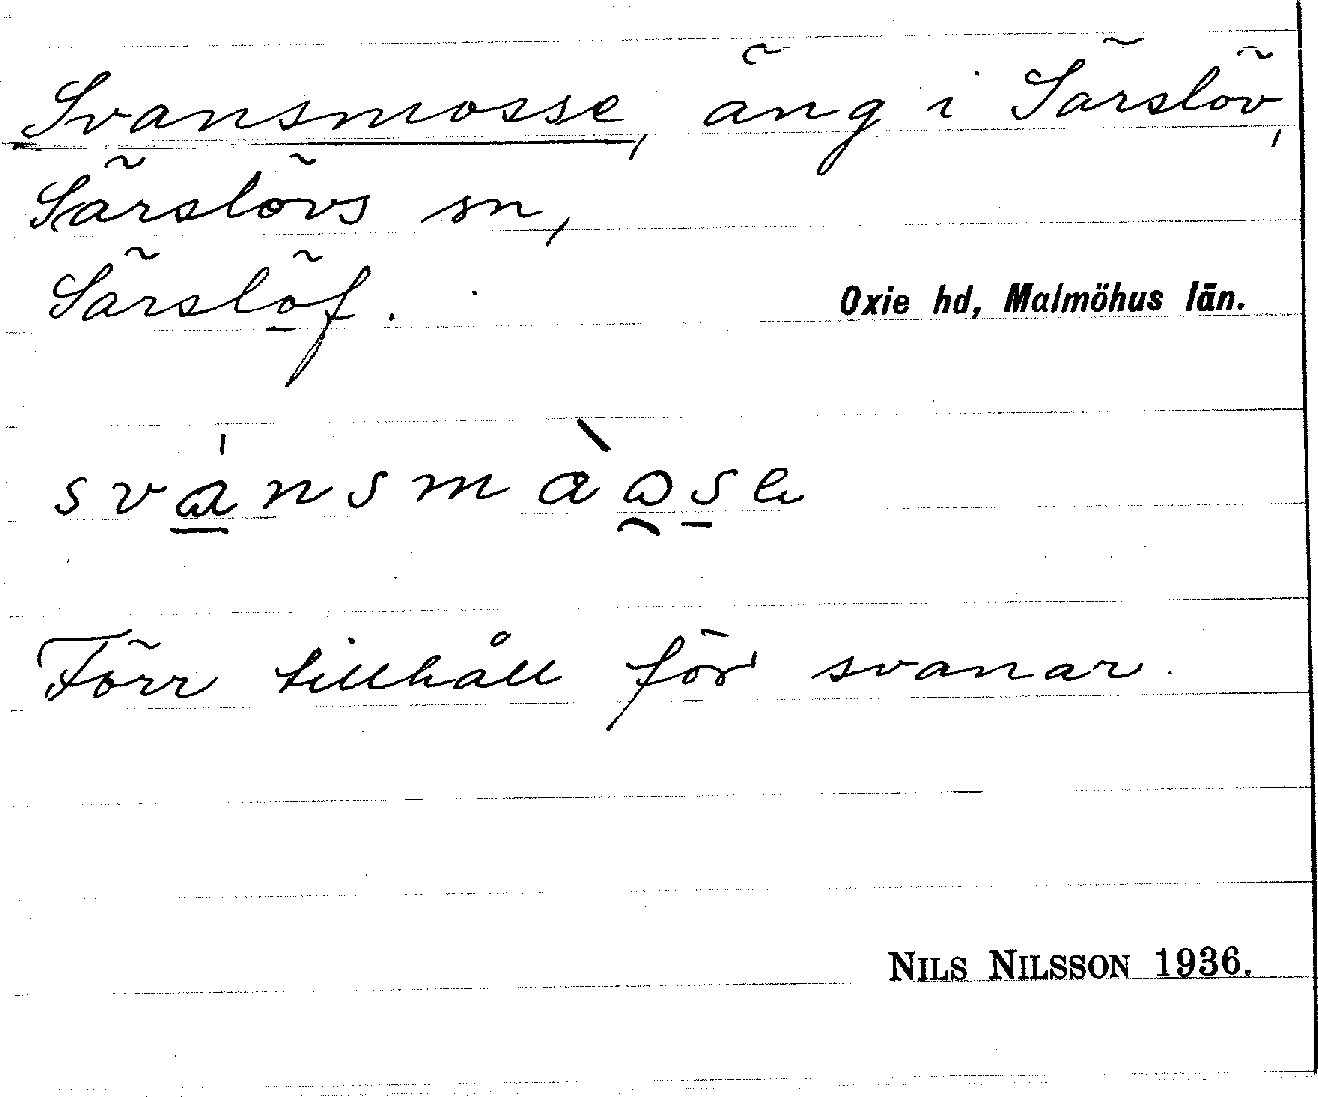 Svansmosse, äng i Särslöv,
Särslövs sn,
Särslöf. Oxie hd, Malmöhus län.
Förr tillhåll för svanar.
NILS NILSSON 1936.